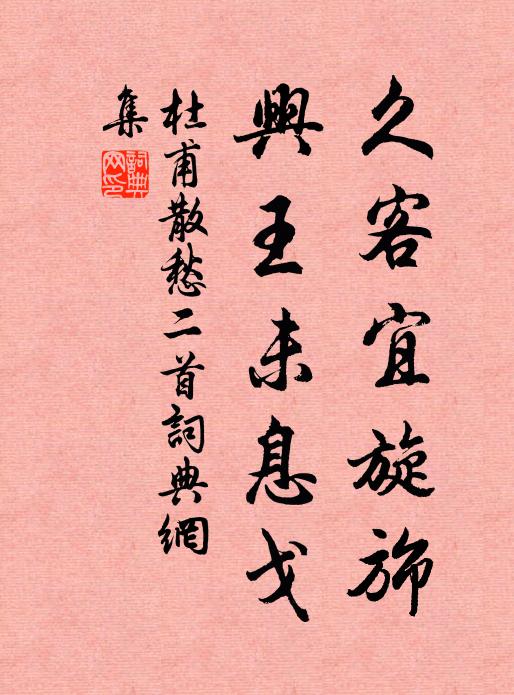 久客宜旋旆
興王未息戈
杜甫散愁二首詞典網
集
詞典网印